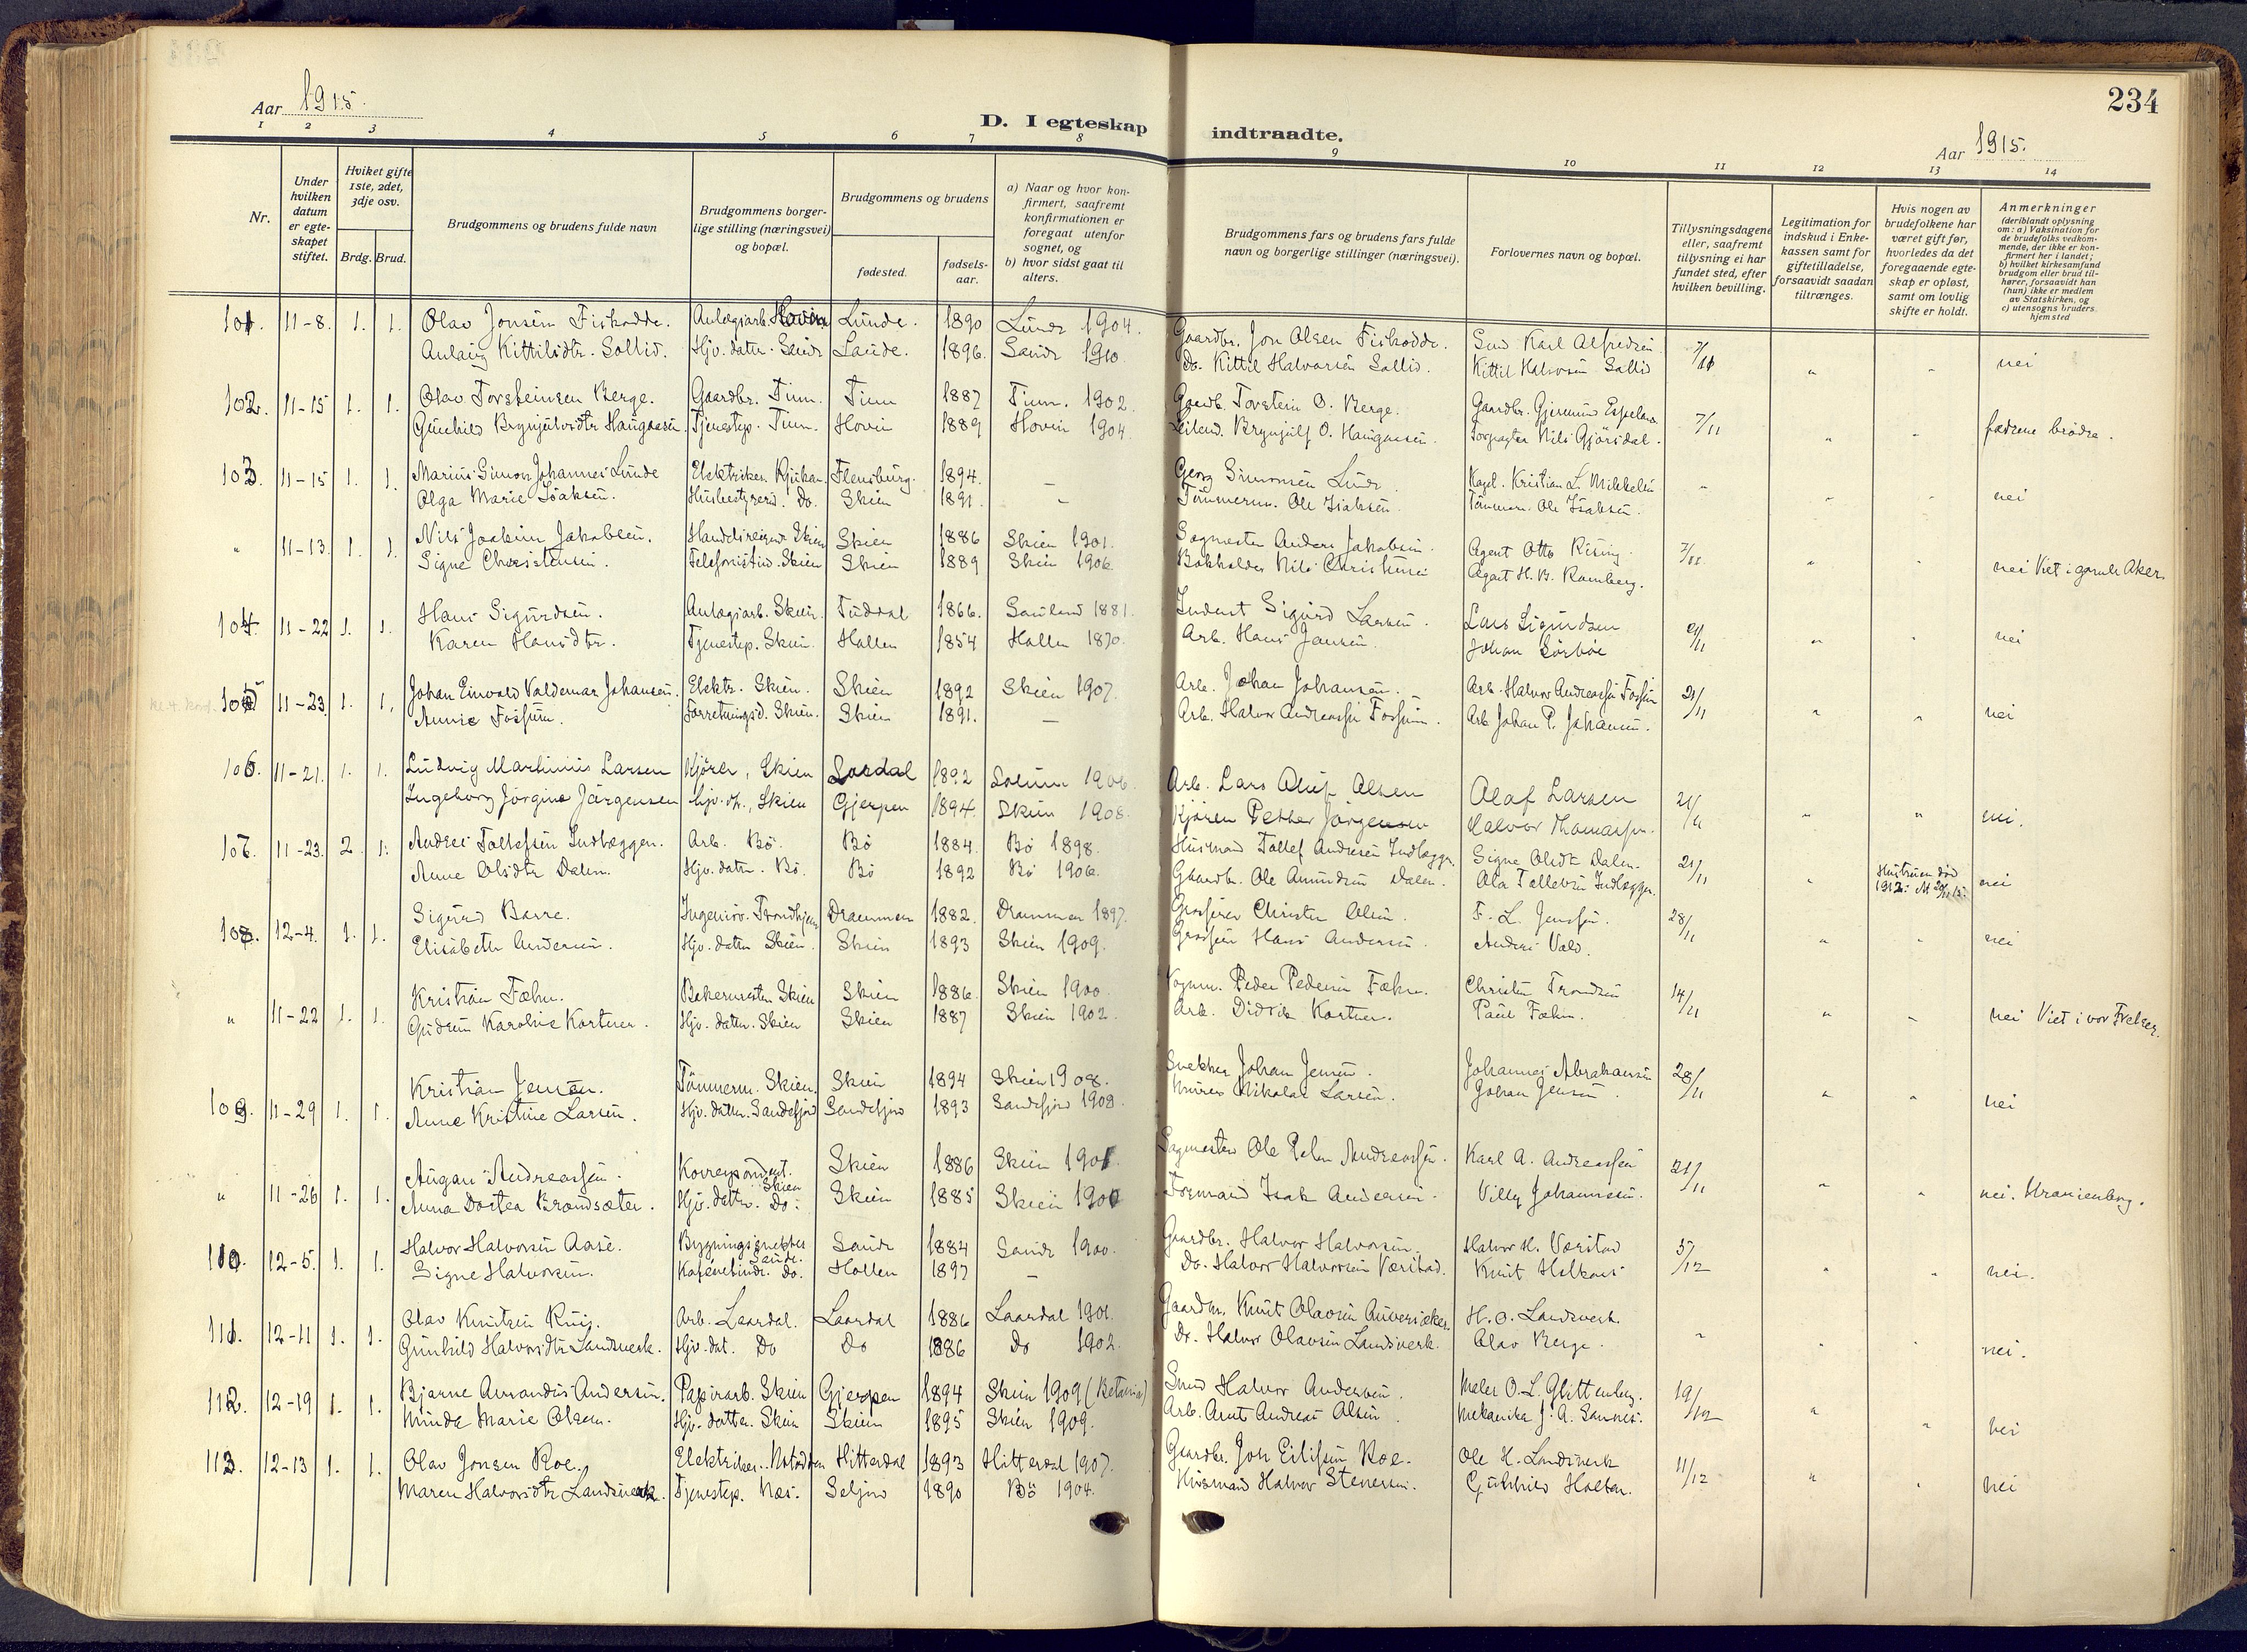 Aar 1915.
D. I egteskap indtraadte.
234
Aar 1915.
1 2 3 4 5 6 7 8 9 10 11 12 13 14
Nr.
Under hvilken datum er egteskapet stiftet.
Hviket gifte 1ste, 2det, 3dje osv.
Brdg. Brud.
Brudgommens og brudens fulde navn
Brudgommens borgerlige stilling (næringsvei) og bopæl.
Brudgommens og brudens
fødested.
fødselsaar.
a) Naar og hvor konfirmert, saafremt konfirmationen er foregaat utenfor sognet, og
b) hvor sidst gaat til alters.
Brudgommens fars og brudens fars fulde navn og borgerlige stillinger (næringsvei).
Forlovernes navn og bopæl.
Tillysningsdagene eller, saafremt tillysning ei har fundet sted, efter hvilken bevilling.
Legitimation for indskud i Enkekassen samt for giftetilladelse, forsaavidt saadan tiltrænges.
Hvis nogen av brudefolkene har været gift før, hvorledes da det foregaaende egteskap er opløst, samt om lovlig skifte er holdt.
Anmerkninger (deriblandt oplysning om: a) Vaksination for de brudefolks vedkommende, der ikke er konfirmert her i landet; b) hvilket kirkesamfund brudgom eller brud tilhører, forsaavidt han (hun) ikke er medlem av Statskirken, og c) utensogns bruders hjemsted
101. 11-8. 1. 1. Olav Jonsen Fiskodde. Anlægsarb. Hovin Lunde. 1890 Lunde 1904. Gaardbr. Jon Olsen Fiskodde. Karl Alfredsen 7/11 " " nei
Aulaug Kittilsdtr. Sollid. Hjv. datter. Saude Saude. 1896. Saude 1910. Do. Kittil Halvorsen Sollid. Kittil Halvorsen Sollid
102. 11-15 1. 1. Olav Torsteinsen Berge. Gaardbr. Tinn. Tinn 1887 Tinn. 1902. Gaardb. Torstein O. Berge. Gaardbr. Gjermund 7/11 " " fædrene brødre.
Gunhild Brynjulvsdtr Haugaasen. Tjenestep. Tinn. Hovin 1889 Hovin 1904. Leilend. Brynjulf O. Haugaasen. Nils Gjörsdal.
103. 11-15 1. 1. Marius Simon Johannes Lunde Elektriker Rjukan. Flensburg. 1894. – Georg Simonsen Lunde. Kapel. Kristian L. Mikkelsen " " " nei
Olga Marie Isaksen. Husbestyrer. Do. Skien 1891. – Tömmerm. Ole Isaksen. Tömmerm. Ole Isaksen.
" 11-13. 1. 1. Nils Joakim Jakobsen. Handelsreisende Skien Skien 1886 Skien 1901. Sagmester Anders Jakobsen. Agent Otto Rising. 7/11 " " nei Viet i gamle Aker.
Signe Christensen. Telefonistind. Skien Skien 1889 Skien 1906 Bokholder Nils Christensen Agent H. B. Ramberg.
104. 11-22 1. 1. Hans Sigurdsen. Anlægsarb. Skien. Tuddal 1866. Sauland 1881. Inderst Sigurd Larsen. Lars Sigurdsen 21/11 " " nei
Karen Hansdtr. Tjenestep. Skien. Hollen 1854 Hollen 1870. Arb. Hans Jansen. Johan Sörböe
105 11-23. 1. 1. Johan Einvald Valdemar Johansen. Elektr. Skien. Skien 1892 Skien 1907. Arb. Johan Johansen. Arb. Halvor Andreassen Fossum 21/11 " " nei
Annie Fossum. Forretningsd. Skien. Skien 1891. – Arb. Halvor Andreassen Fossum. Arb Johan P. Johansen.
106. 11-21. 1. 1. Ludvig Martinius Larsen Kjörer, Skien 1892 Solum 1906. Arb. Lars Oluf Olsen Olaf Larsen 21/11 " " nei.
Ingeborg Jörgine Jörgensen hjv. dt., Skien Gjerpen 1894. Skien 1908. Kjören Petter Jörgensen Halvor Thomassen.
107. 11-23. 2. 1. Andres Tollefsen Indlæggen. Arb. Bø. Bø 1884. Bø 1898. Husmand Tollef Andresen Indlæggen. Signe Olsdtr Dalen. 21/11 " Hustruen død 1912. nei
Anne Olsdtr Dalen. Hjv. datter. Bø. Bø 1892 Bø 1906. Gaardb. Ole Amundsen Dalen. Ola Tollefsen Indlæggen.
108. 12-4. 1. 1. Sigurd Barre. Ingeniør. Trondhjem Drammen 1882. Drammen 1897. Grosserer Christen Olsen. F. L. Jenssen. 28/11 " " nei
Elisabeth Andersen. Hjv. datter Skien. Skien 1893 Skien 1909. Grosserer Hans Andersen. Anders Vald.
" 11-22 1. 1. Kristian Fæhn. Bakermester Skien Skien 1886. Skien 1900. Vognm. Peder Pedersen Fæhn. Christen Trondsen 14/11 " " nei Viet i vor Frelser.
Gudrun Karoline Kortner. Hjv. datter. Skien Skien 1887 Skien 1902. Arb. Didrik Kortner. Paul Fæhn.
109. 11-29 1. 1. Kristian Jensen. Tömmerm. Skien. Skien 1894 Skien 1908. Snekker Johan Jensen. Johannes Abrahamsen 28/11 " " nei
Anne Kristine Larsen. Hjv. datter. Sandefjord Sandefjord 1893 Sandefjord 1908. Murer Nikolai Larsen. Johan Jensen.
" 11-26 1. 1. August Andreassen. Korrespondent. Skien Skien 1886 Skien 1901. Sagmester Ole Peder Andreassen. Karl A. Andreassen 21/11 " " nei. Uranienborg.
Anna Dortea Brandsæter. Hjv. datter. Do. Skien 1885 Skien 1900 Formand Isak Andersen. Villy Johannesen.
110. 12-5. 1. 1. Halvor Halvorsen Aase. Bygningssnekker Saude. Saude 1884 Saude 1900. Gaardbr. Halvor Halvorsen. Halvor H. Værstad 5/12 " " nei.
Signe Halvorsen. Do. Hollen 1897 – Do. Halvor Halvorsen Værstad. Knut
111. 12-11 1. 1. Olav Knutsen Arb. Laardal. Laardal 1886 Laardal 1901. Gaardbr. Knut Olavsen H. O. Landsverk. " " " nei.
Gunhild Halvorsdtr Landsverk. Hjv. dat. Do Do 1886 Do 1902. Do. Halvor Olavsen Landsverk. Olav Berge.
112. 12-19 1. 1. Bjarne Amandus Andersen. Papirarb. Skien Gjerpen 1894 Skien 1909 (Betania) Smed Halvor Andersen. Maler O. L. Glittenberg. 19/12 " " nei
Minda Marie Olsen. Hjv. datter. Skien Skien 1895 Skien 1909. Arb. Arnt Andreas Olsen. Mekaniker J. A. Sannes.
113. 12-13 1. 1. Olav Jonsen Roe. Elektriker.. Notodden Hitterdal 1893 Hitterdal 1907. Gaardbr. Jon Eilifsen Roe. Ole H. Landsverk 11/12 " " nei
Maren Halvorsdtr Landsverk. Tjenestep. Næs. Seljord 1890 Bö 1904. Husmand Halvor Stenersen. Gunhild Holtan.